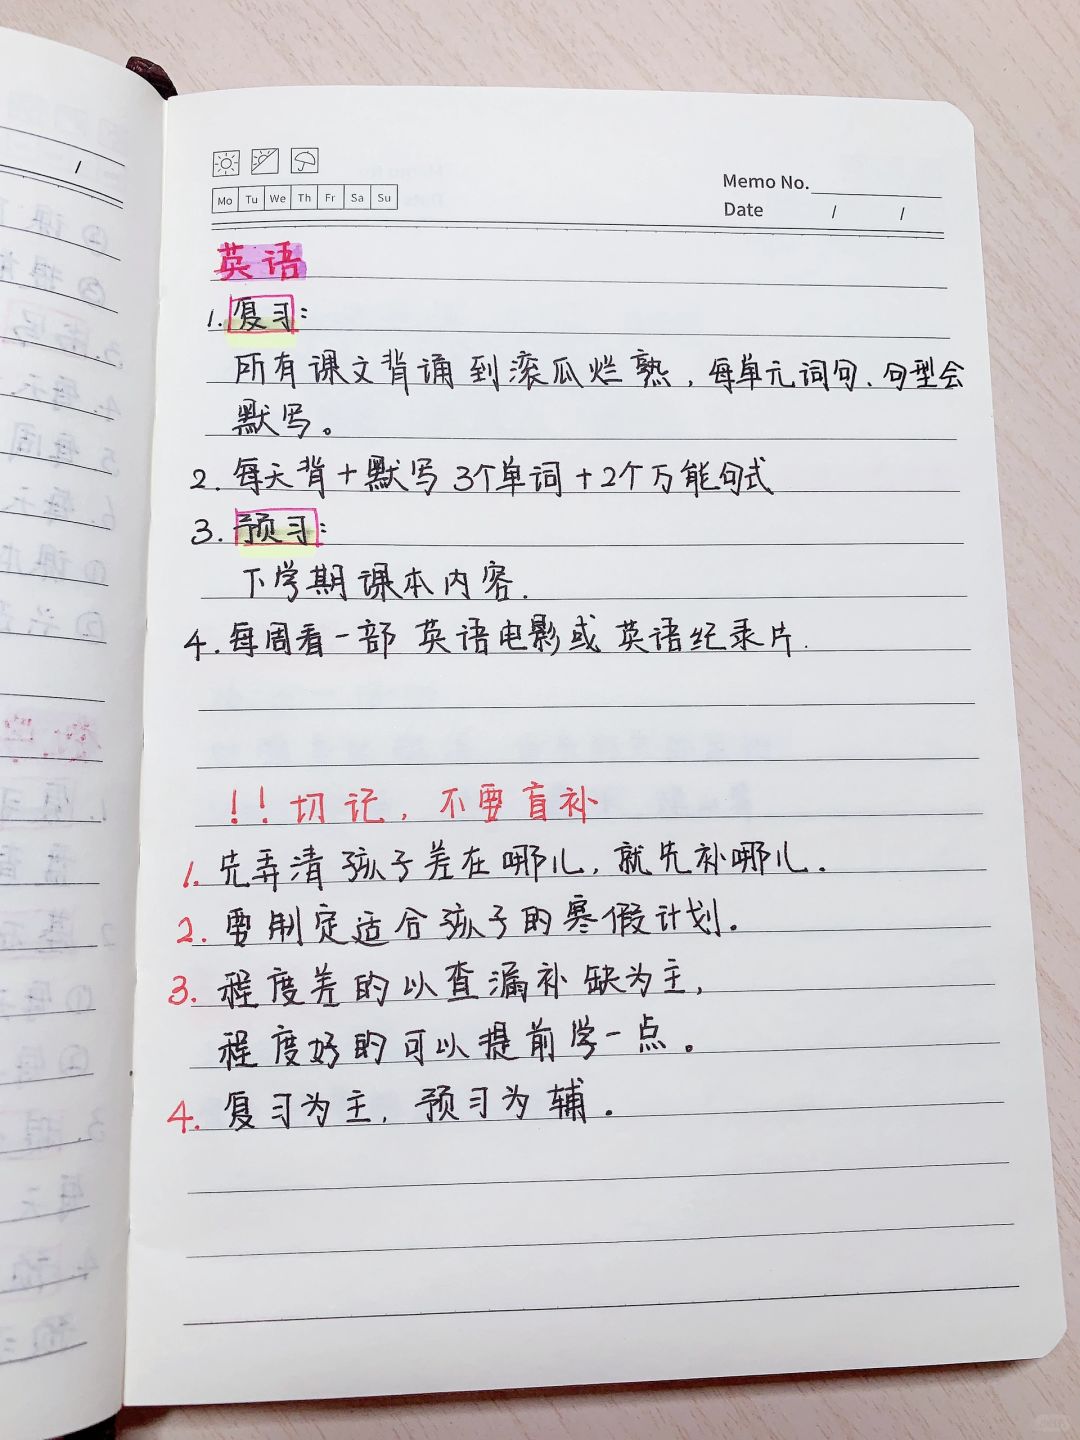 Mo Tu We Th Fr Sa Su
Memo No.
Date / /
英语
1. 复习：
所有课文背诵到滚瓜烂熟，每单元词句、句型会
默写。
2. 每天背+默写3个单词+2个万能句式
3. 预习：
下学期课本内容.
4. 每周看一部 英语电影或 英语纪录片.
!! 切记，不要盲补
1. 先弄清孩子差在哪儿，就先补哪儿.
2. 要制定适合孩子的寒假计划.
3. 程度差的以查漏补缺为主，
程度好的可以提前学一点。
4. 复习为主，预习为辅.